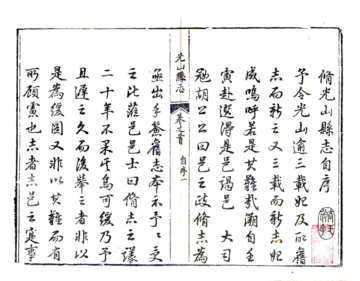 脩光山縣志自序
予令光山逾三載始及舊
志而新之又三載而新志始
成嗚呼若是其難哉溯自壬
寅赴選得是邑謁邑大司
胡公公曰邑之政脩志為
光山縣志 卷之首 自序一
亟出手舊志本示予予
之比蒞邑邑士曰脩志之議
二十年不果矣烏可緩乃予
且遲之久而後舉之者非以
是為緩圖又非以其難而有
所顧慮也志者志邑之寔事